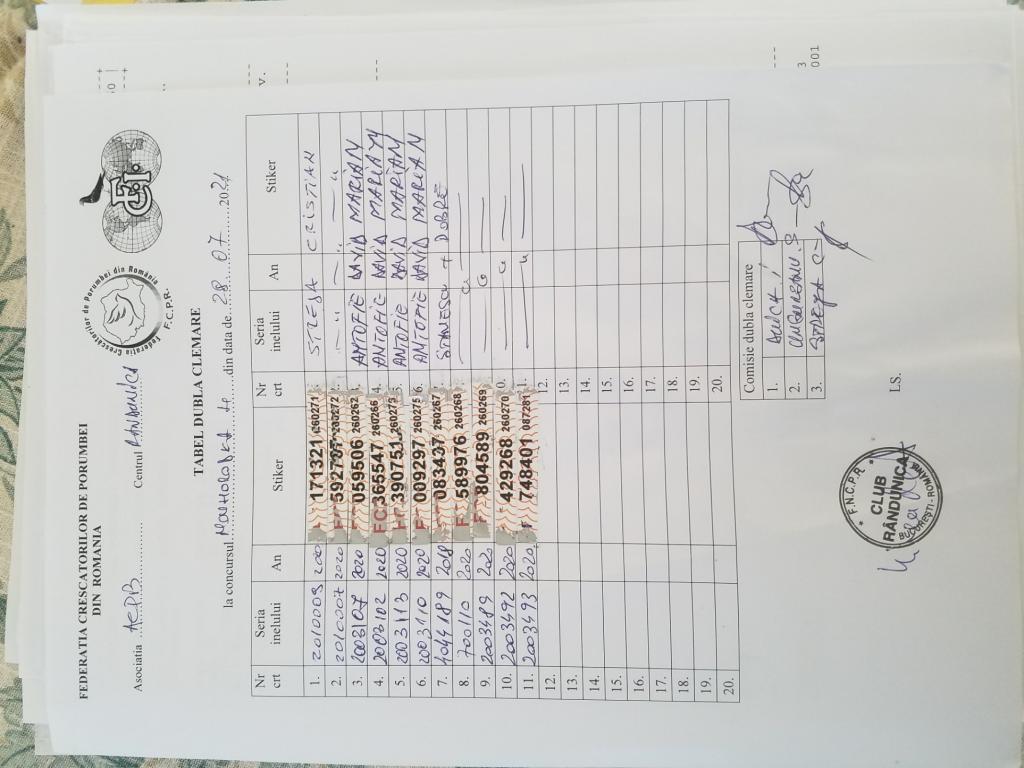 FEDERATIA CRESCATORILOR DE PORUMBEI
DIN ROMANIA
Federatia Crescătorilor de Porumbei din România
F.C.P.R.
FCI
Asociatia ACPB Centrul RANDUNICA
TABEL DUBLA CLEMARE
la concursul din data de 28 07 2021
Nr crt Seria inelului An Stiker Nr crt Seria inelului An Stiker
1. 2010009 2020 171321 260271 STREJA CRISTIAN
2. 2010007 2020 260272 — u — — u
3. 2003107 2020 059506 260262 ANTOFIE DAVID MARIAN
4. 2003102 2020 FC 365547 260266 4. ANTOFIE DAVID MARIAN
5. 2003113 2020 390751 ANTOFIE DAVID MARIAN
6. 2003110 2020 009297 260275 6. ANTOFIE DAVID MARIAN
7. 4044189 2018 083437 260267 STANESCU + DOBRE
8. 700110 2020 589976 260268 — u —
9. 2003489 2020 804589 260269 — u —
10. 2003492 2020 429268 260270 0. — u —
11. 2003493 2020 748401 087281 1. — u —
12. 12.
13. 13.
14. 14.
15. 15.
16. 16.
17. 17.
18. 18.
19. 19.
20. 20.
Comisie dubla clemare
1.
2.
3.
LS.
F.N.C.P.R.
CLUB
RÂNDUNICA
BUCUREŞTI - ROMANIA
v.
3
001